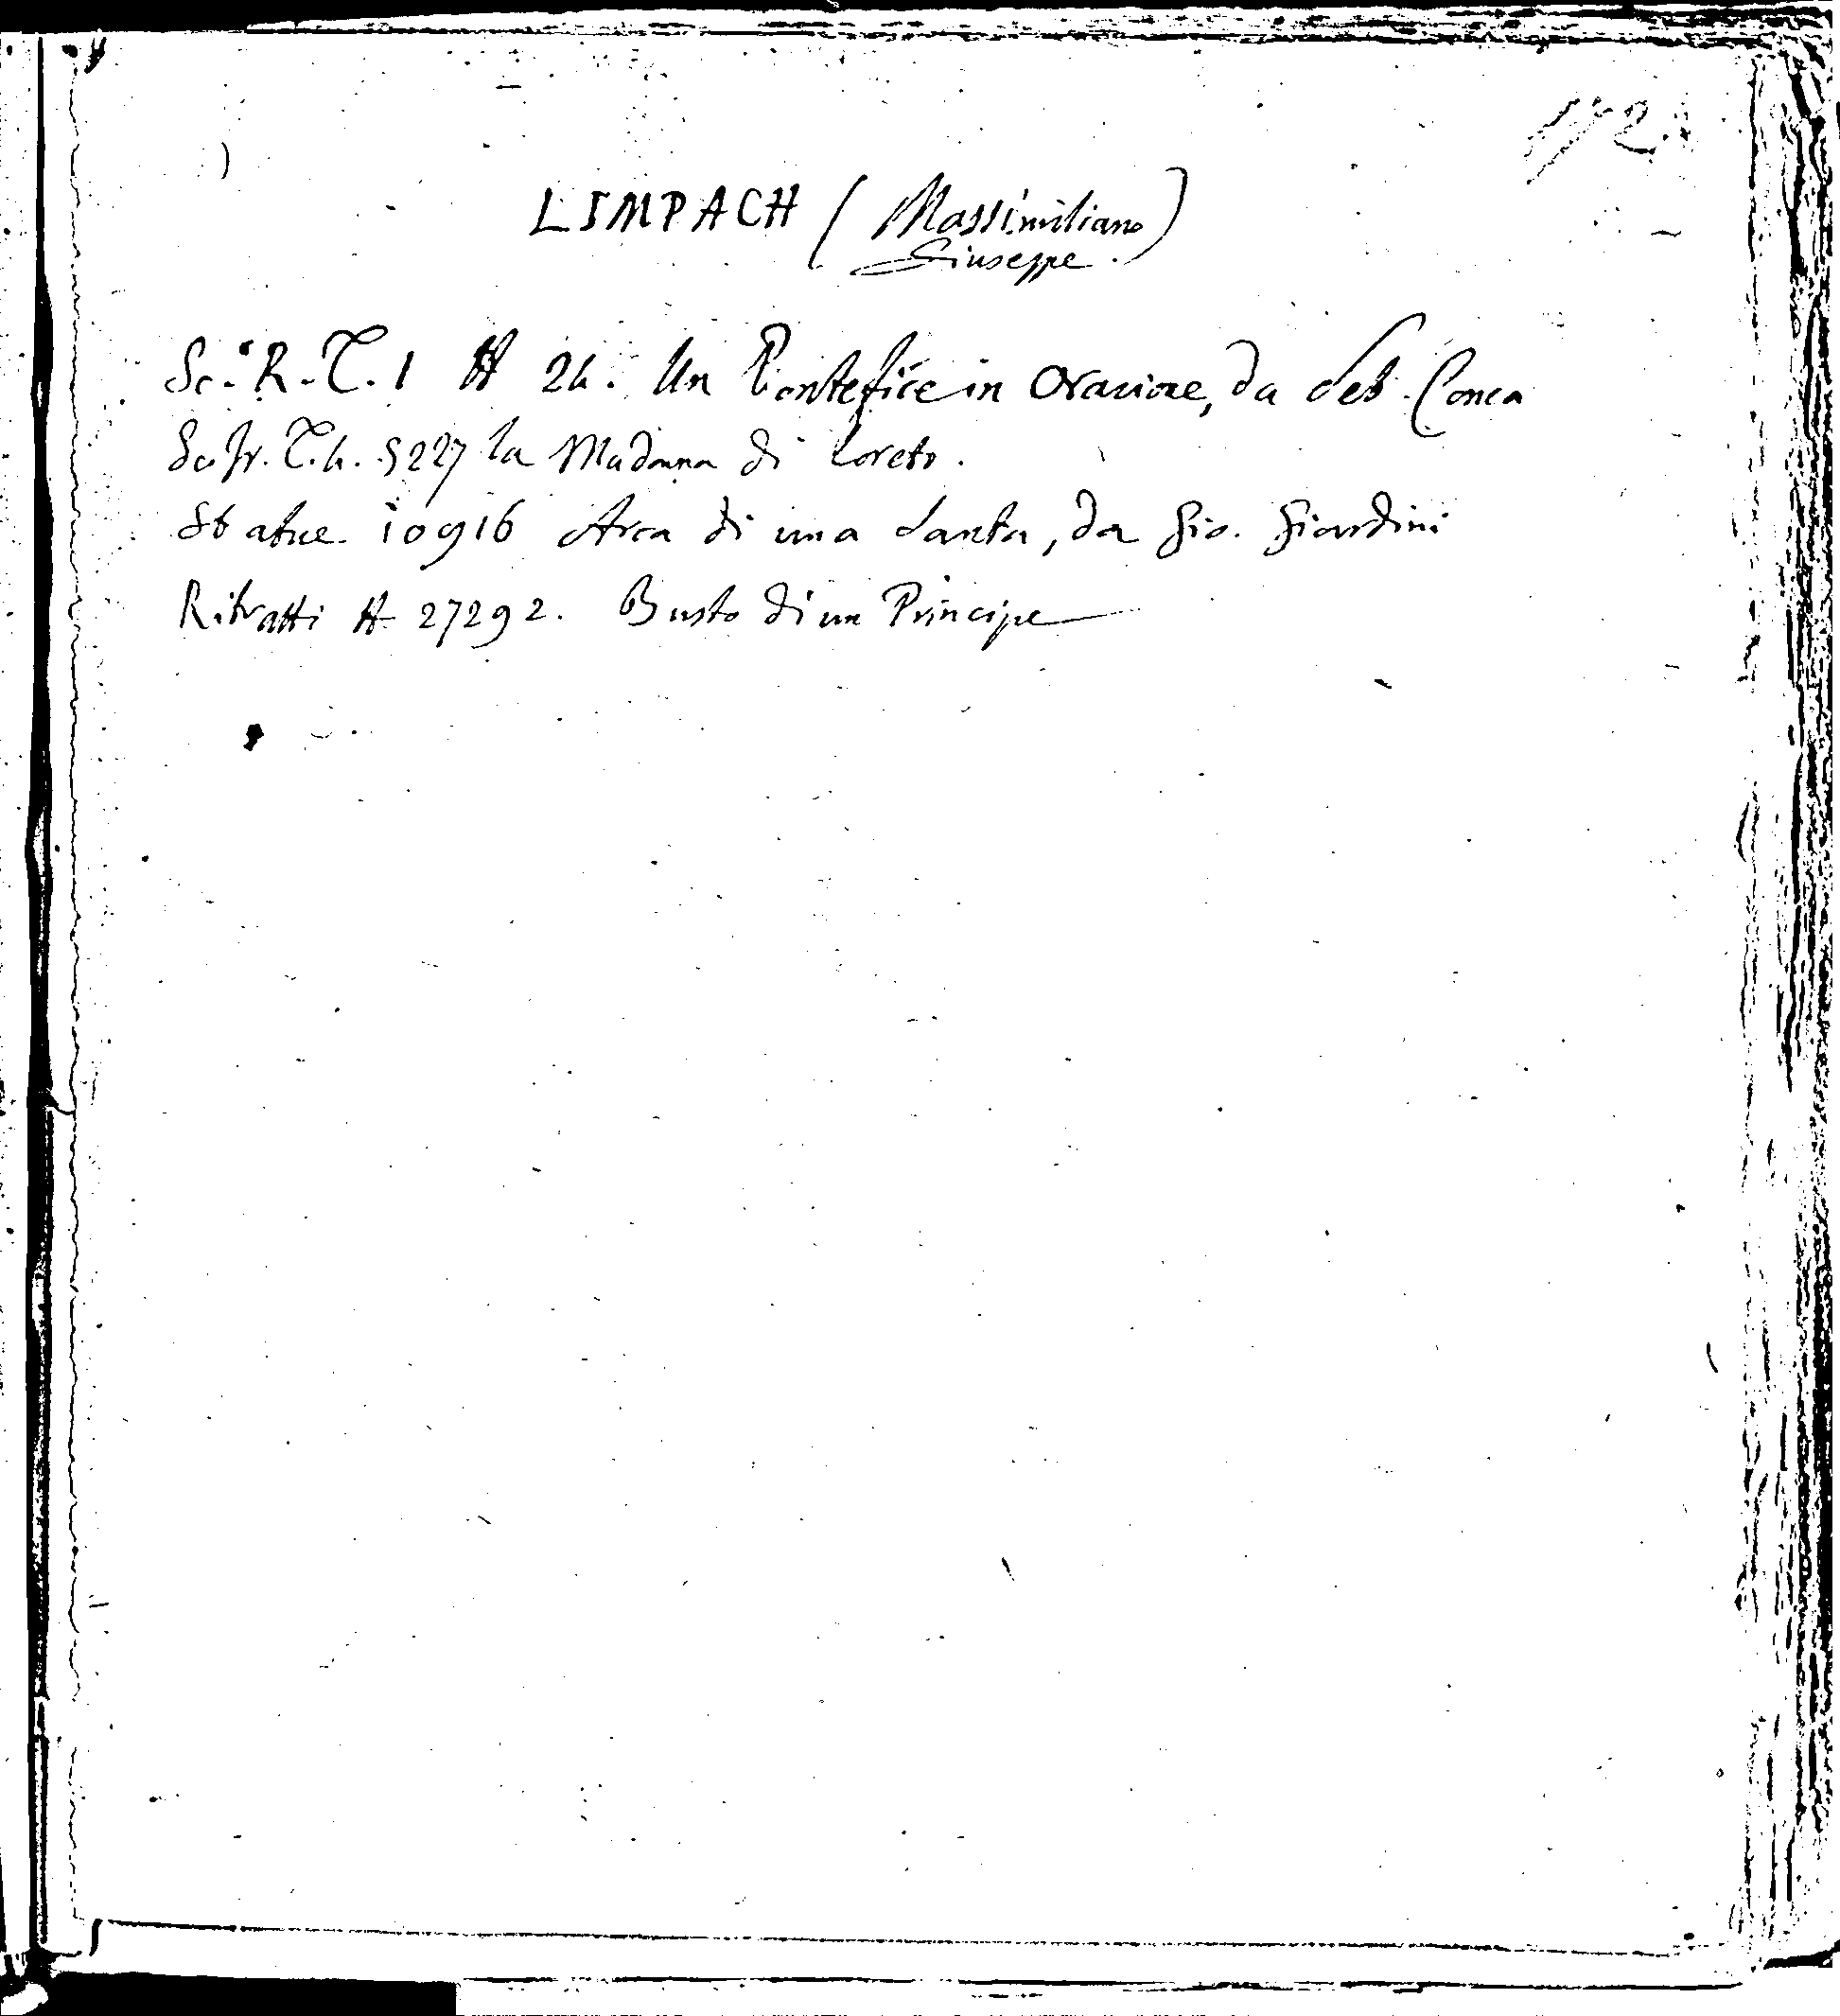 172.
LIMPACH (Massimiliano)
Giuseppe.
Sc. R. T. 1 H 24. Un Pontefice in Orazione, da Seb. Conca
Sc. fr. T. 4. 5227 la Madonna di Loreto.
Statue 10916 Arca di una Santa, da Gio. Giardini
Ritratti H 27292. Busto di un Principe